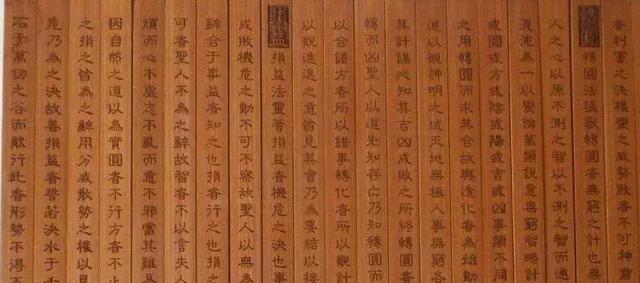 者利害之決權變之威勢敗者不可神肅
轉圓法猛獸轉圓者無窮之計也無
人之心以原不測之智以不測之智而通
混沌為一以變論萬類說意無窮智略計
或圓或方或陰或陽或吉或凶事類不同
之用轉圓而求其合故與造化者為始動
道以觀神明之域天地無極人事無窮各
其計謀必知其吉凶成敗之所終轉圓者
轉而凶聖人以道先知存亡乃知轉圓而
以合語方者所以錯事轉化者所以
以觀進退之意皆見其會乃為要結以接
損益法靈蓍損益者機危之決也事
成敗機危之動不可不察故聖人以無
辭合于事益者知之也損者行之也損
可者聖人不為之辭故智者不以言失人
煩而心不虛志不亂而意不邪當其難易
因自然之道以為實圓者不行方者不止
之損之皆為之辭用分威散勢之權以見
危乃為之決故善損益者譬若決水于千
石于萬仞之谷而能行此者形勢不得不